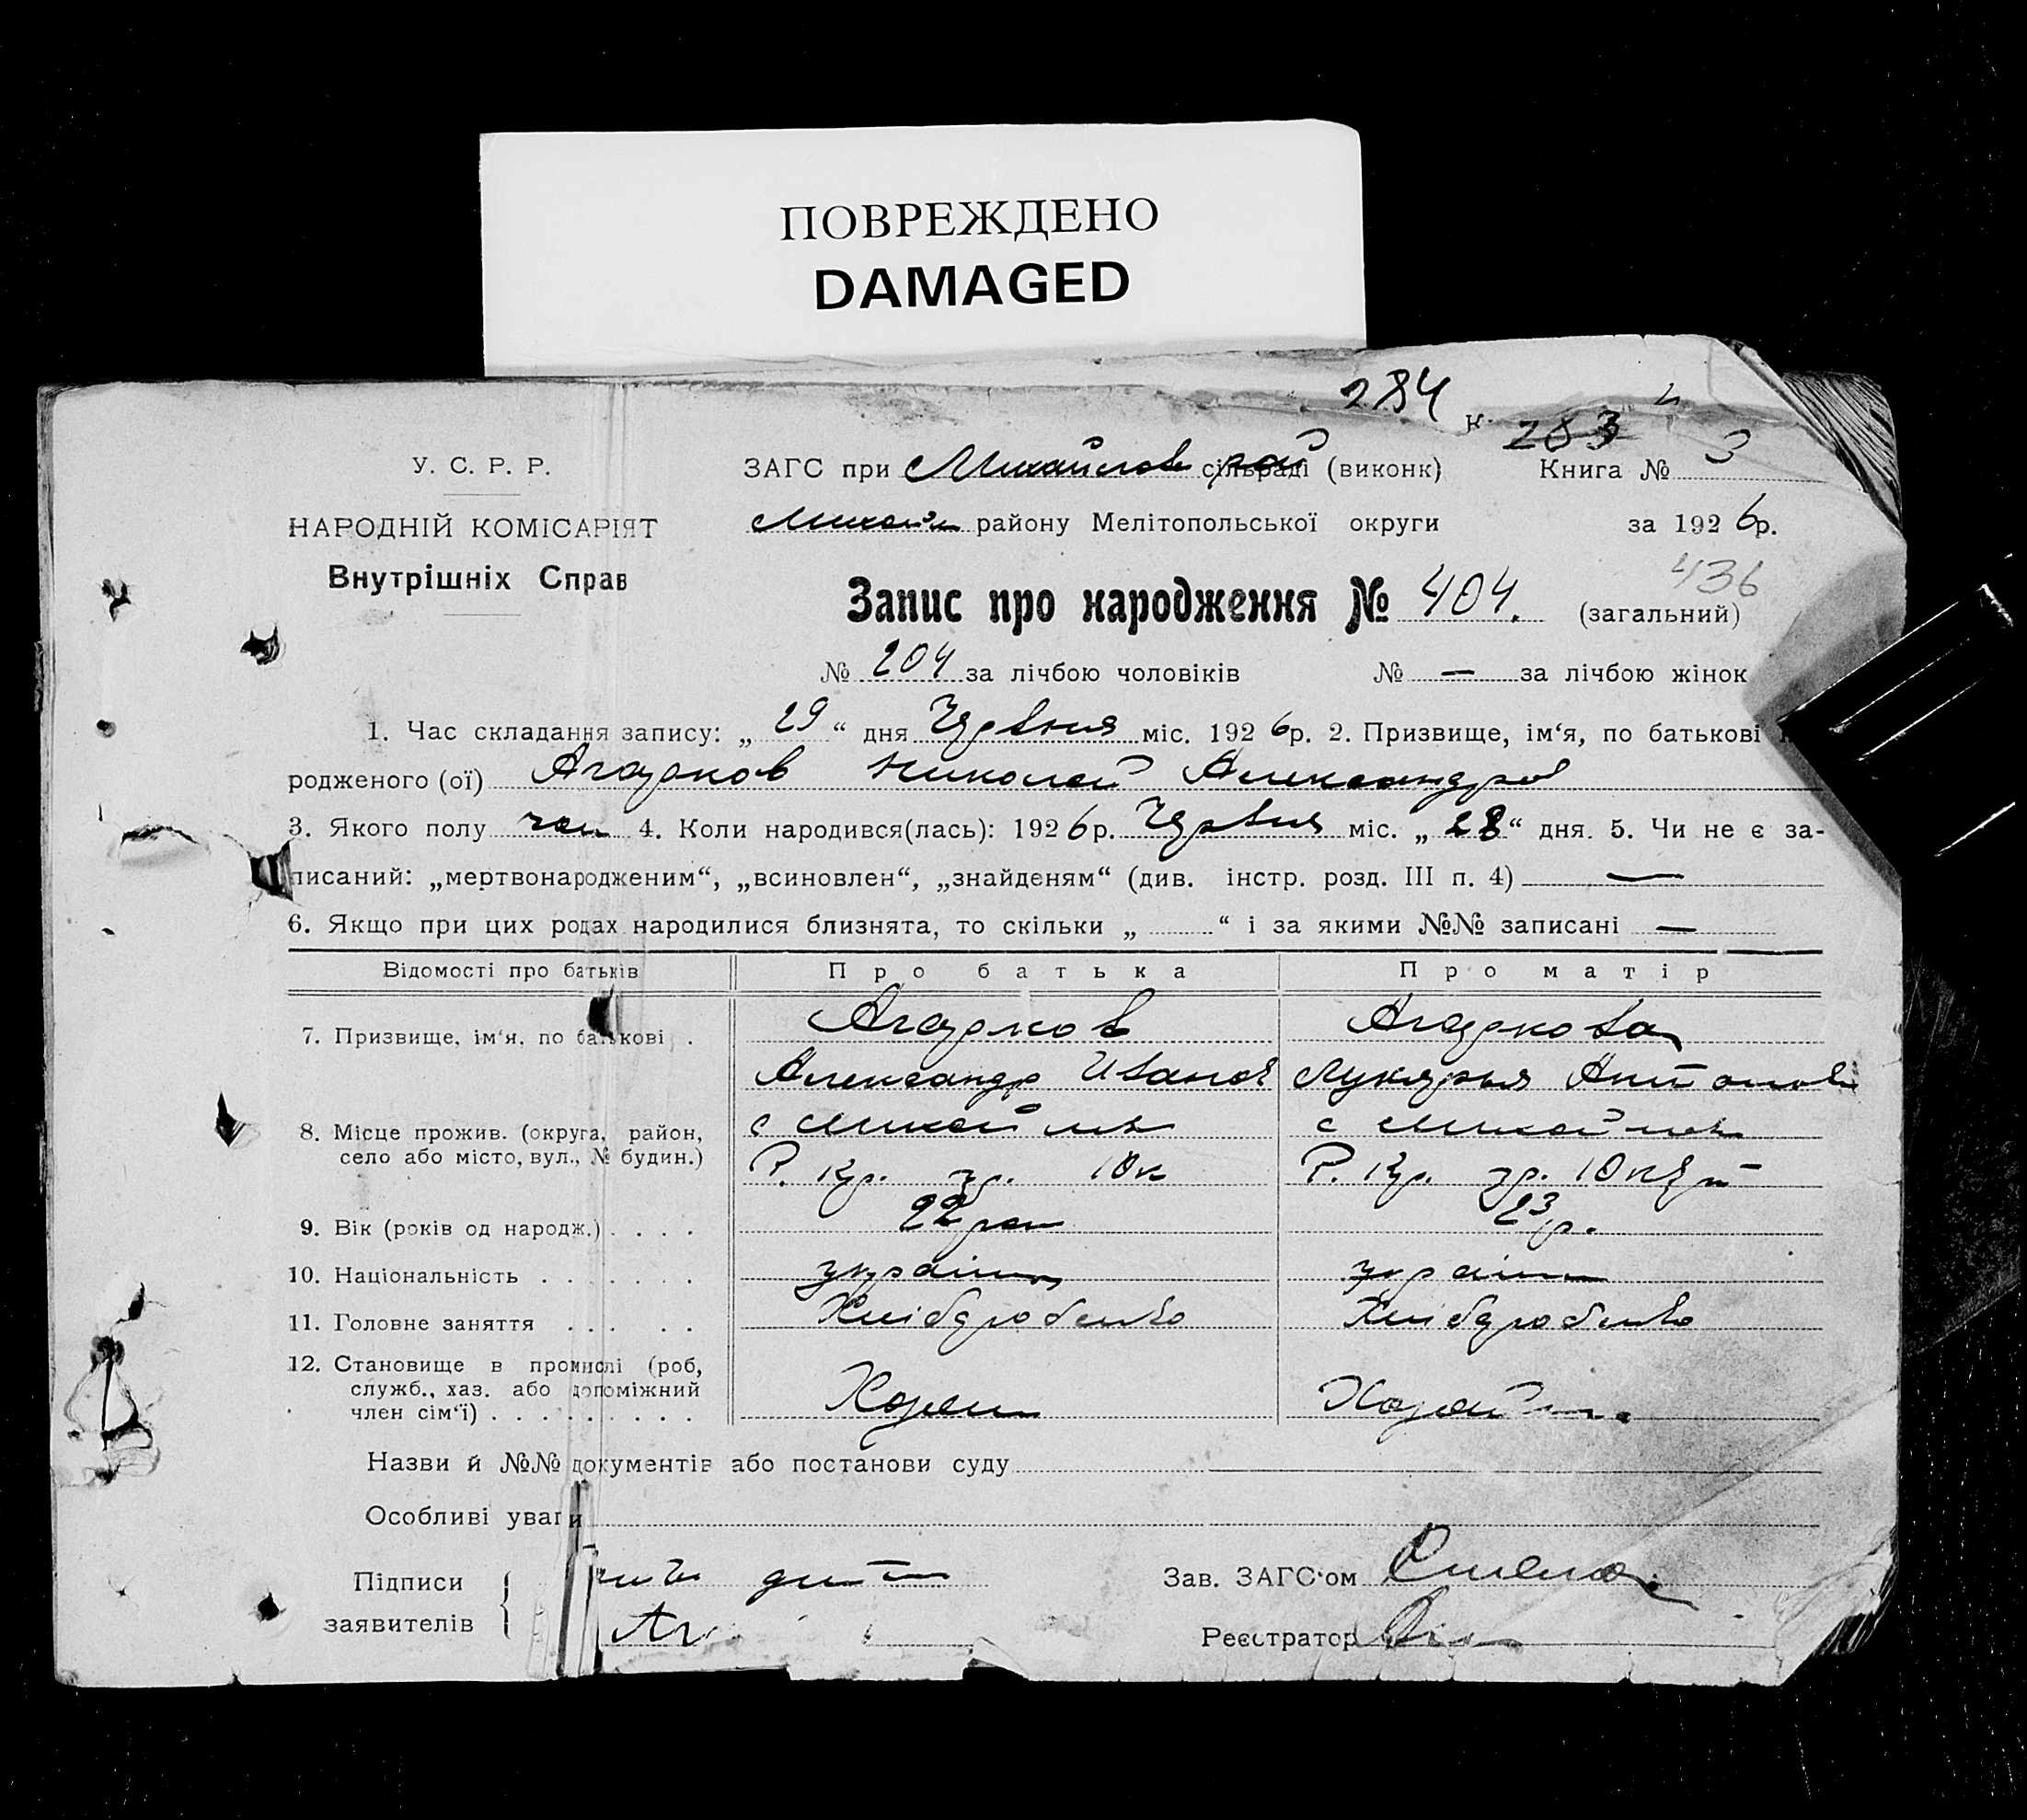 ПОВРЕЖДЕНО
DAMAGED
284
к. 283
У. С. Р. Р.
ЗАГС при Михайлов сільраді (виконк) Книга № 3
НАРОДНІЙ КОМІСАРІЯТ
Михайл району Мелітопольської округи за 1926р.
Внутрішніх Справ
436
Запис про народження № 404. (загальний)
№ 204 за лічбою чоловіків № — за лічбою жінок
1. Час складання запису: „ 29 “ дня Червня міс. 1926р. 2. Призвище, ім‘я, по батькові
родженого (ої) Агарков Николай Александров
3. Якого полу чол 4. Коли народився(лась): 1926р. Червня міс. „ 28 “ дня. 5. Чи не є за-
писаний: „мертвонародженим“, „всиновлен“, „знайденям“ (див. інстр. розд. III п. 4) —
6. Якщо при цих родах народилися близнята, то скільки „ “ і за якими №№ записані —
Відомості про батьків Про батька Про матір
7. Призвище, ім‘я, по батькові . Агарков Агаркова
Александр Иванов Лукерья Антонов
8. Місце прожив. (округа, район, с Михайлів с Михайлов
село або місто, вул., № будин.) Р. Кр. 10к Р. Кр. 10к
9. Вік (років од народж.) . . . . 22 рок 23 р.
10. Національність . . . . . . . україн україн
11. Головне заняття . . . . . Хлібдробств Хлібдробств
12. Становище в промислі (роб,
служб., хаз. або допоміжний
член сім‘ї) . . . . . . . . . Хозяін Хозяй
Назви й №№ документів або постанови суду
Особливі уваги
Підписи Зав. ЗАГС‘ом
заявителів Аг Реєстратор